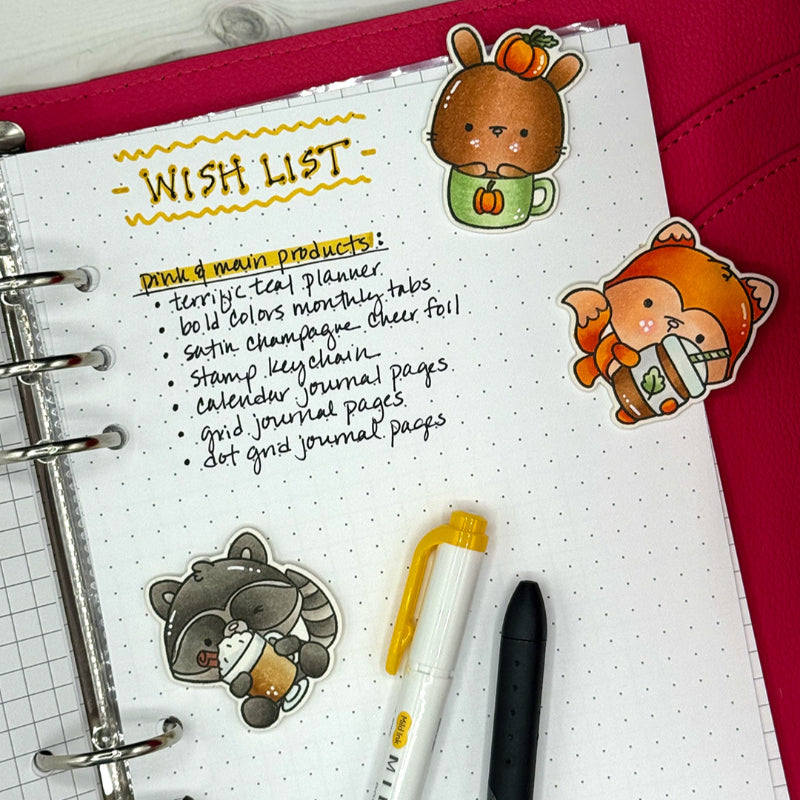 - WISH LIST -
pink & main products:
• terrific teal planner
• bold colors monthly tabs
• satin champagne cheer foil
• stamp keychain
• calendar journal pages
• grid journal pages
• dot grid journal pages
Mild ink